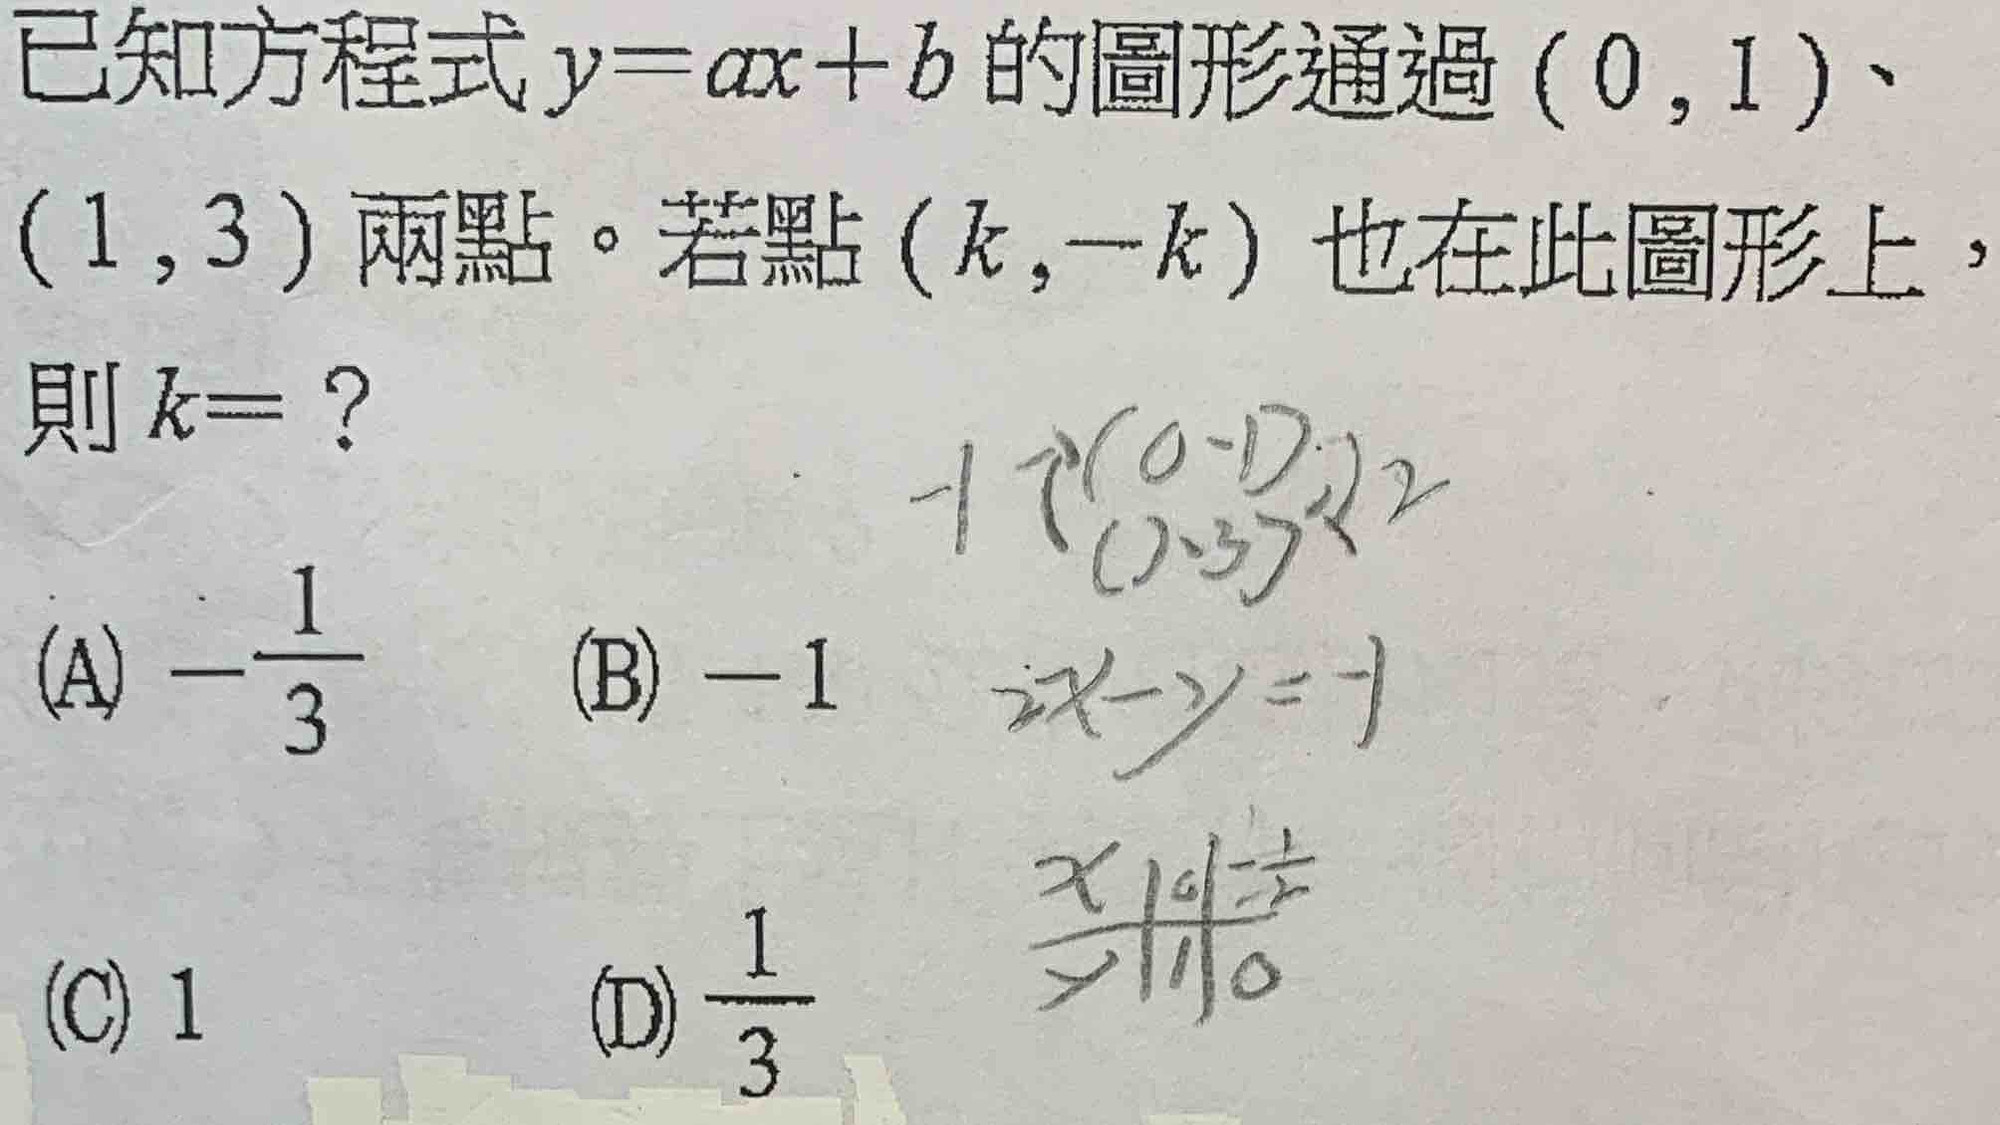 已知方程式 y=ax+b 的圖形通過 ( 0 , 1 )、
( 1 , 3 ) 兩點。若點 ( k , -k ) 也在此圖形上，
則 k= ?
-1 (0,1) 2
(1,3)
(A) -1/3 (B) -1
2x-y=-1
x | 0 | -1/2
y | 1 | 0
(C) 1 (D) 1/3